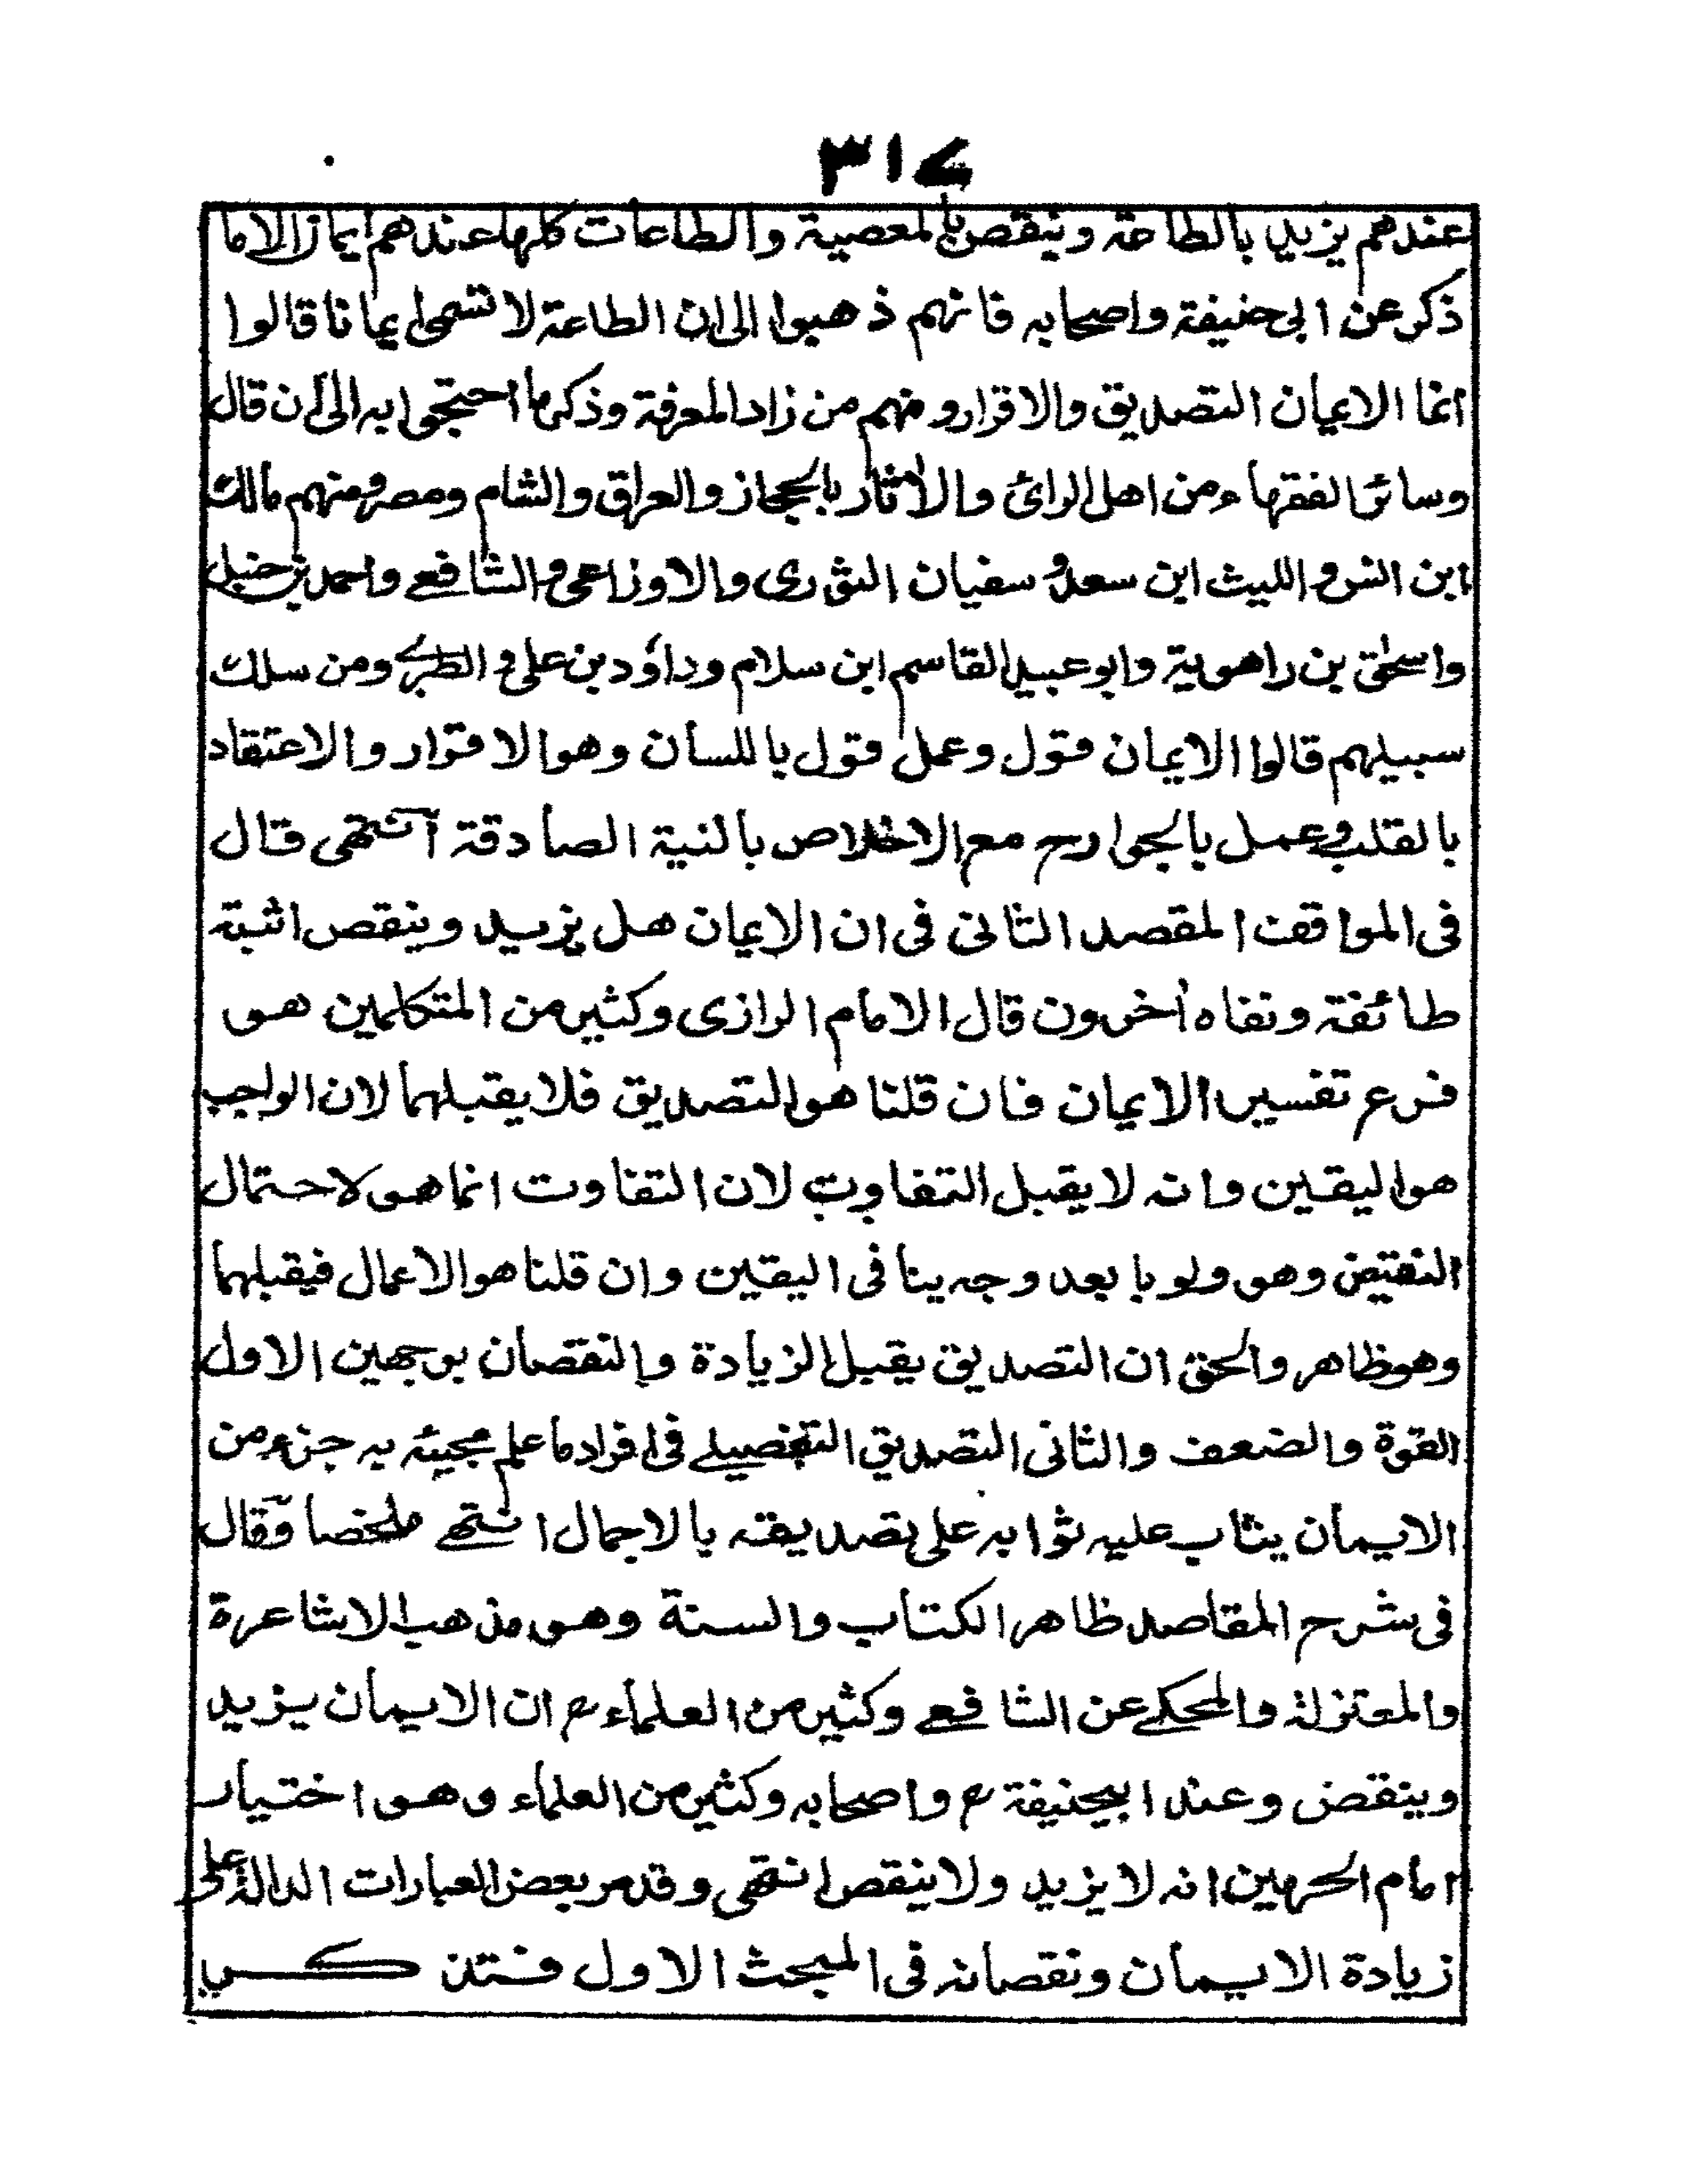 ٣١٤
عندهم يزيد بالطاعة وينقص بالمعصية والطاعات كلها عندهم ايمان الاما
ذكر عن ابى حنيفة واصحابه فانهم ذهبوا الى ان الطاعة لا تسمى ايمانا قالوا
انما الايمان التصديق والاقرار ومنهم من زاد المعرفة وذكر ما احتجوا به الى ان قال
وسائر الفقهاء من اهل الرائ والأثار بالحجاز والعراق والشام ومصر ومنهم مالك
ابن انس والليث ابن سعد وسفيان الثورى والاوزاعى والشافعے واحمد بن حنبل
واسحٰق بن راهوية وابو عبيد القاسم ابن سلام وداؤد بن على و الطبرے ومن سلك
سبيلهم قالوا الايمان قول وعمل قول باللسان وهو الاقرار والاعتقاد
بالقلب وعمل بالجوارح مع الاخلاص بالنية الصادقة انتهى قال
فى المواقف المقصد الثانى فى ان الايمان هل يزيد وينقص اثبته
طائفة ونفاه أخرون قال الامام الرازى وكثير من المتكلمين هو
فرع تفسير الايمان فان قلنا هو التصديق فلا يقبلهما لان الواجب
هو اليقين وانه لا يقبل التفاوت لان التفاوت انما هو لاحتمال
النقيض وهو ولو بابعد وجه ينافى اليقين وان قلنا هو الاعمال فيقبلهما
وهو ظاهر والحق ان التصديق يقبل الزيادة والنقصان بوجهين الاول
القوة والضعف والثانى التصديق التفصيلے فى افراد ما علم مجيئه به جزء من
الايمان يثاب عليه ثوابه على تصديقه بالاجمال انتهے ملخصا وقال
فى شرح المقاصد ظاهر الكتاب والسنة وهو مذهب الاشاعرة
والمعتزلة والمحكے عن الشافعے وكثير من العلماء ان الايمان يزيد
وينقص وعند ابيحنيفة واصحابه وكثير من العلماء وهو اختيار
امام الحرمين انه لا يزيد ولا ينقص انتهى وقد مر بعض العبارات الدالة على
زيادة الايمان ونقصانه فى المبحث الاول فتذكر